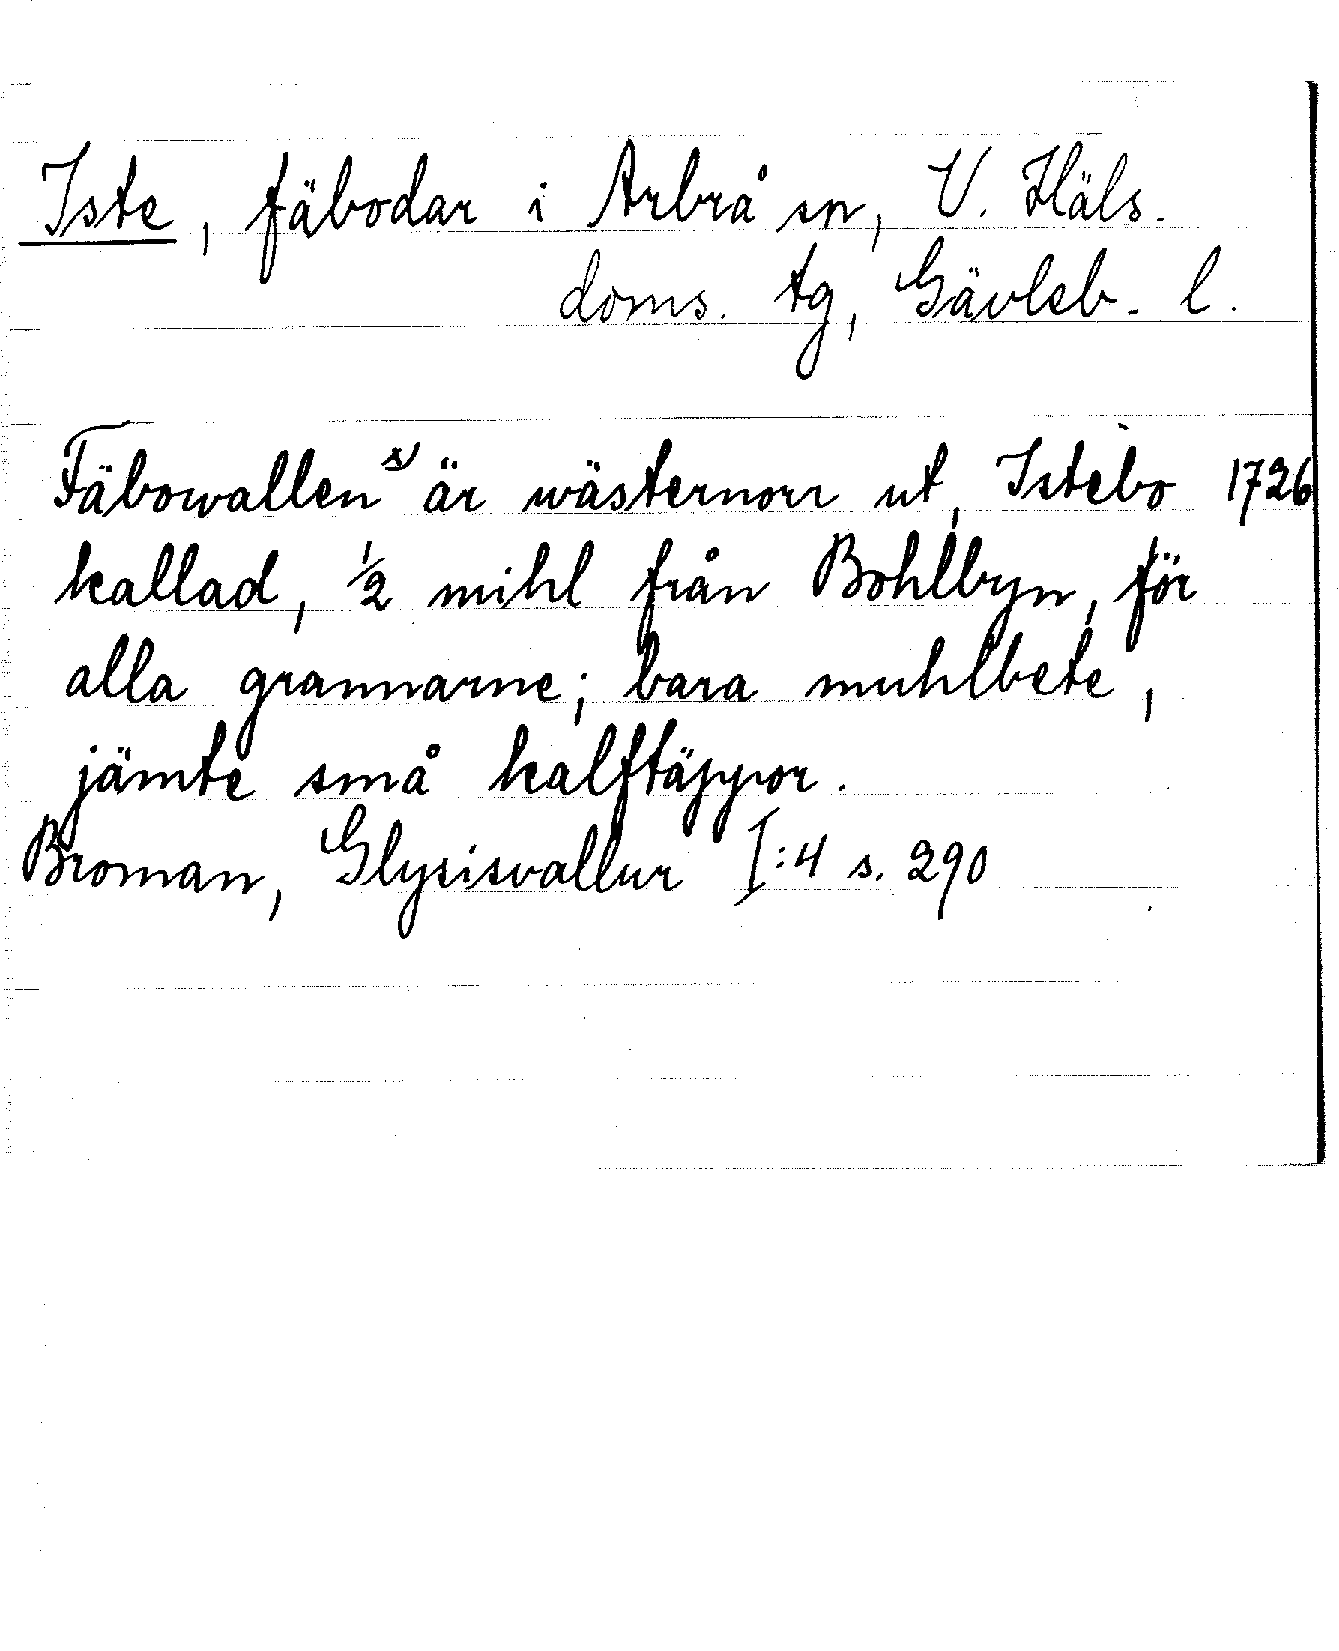 Iste, fäbodar i Arbrå sn, V. Häls.
doms. tg, Gävleb. l.
Fäbowallen x) är wästernorr ut, Istebo 1726
kallad, 1/2 mihl från Bohlbyn, för
alla grannarne; bara muhlbete,
jämte små kalftäppor.
Broman, Glysisvallur I:4 s. 290